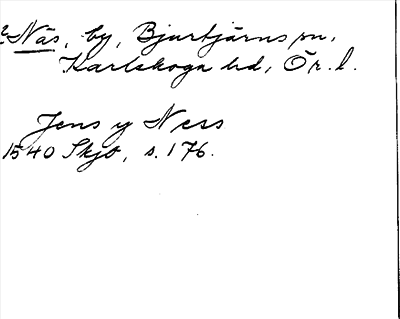 2 Näs, by, Bjurtjärns sn,
Karlskoga hd, Ör. l.
Jens y Ness
1540 Skjb, s. 176.